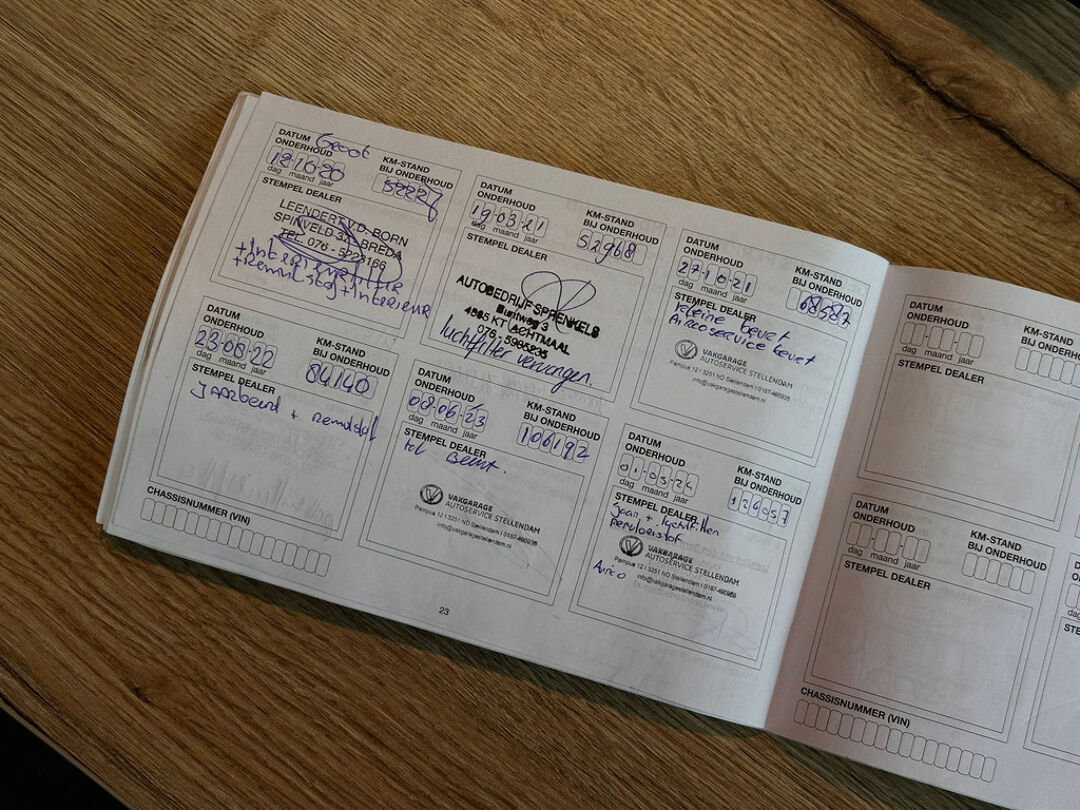 DATUM ONDERHOUD Groot
KM-STAND BIJ ONDERHOUD
12 10 20
dag maand jaar
STEMPEL DEALER
LEENDERT V.D. BORN
SPINVELD BREDA
TEL. 076 -
+ remvlstof + Interieur
DATUM ONDERHOUD
KM-STAND BIJ ONDERHOUD
19 03 21
52968
dag maand jaar
STEMPEL DEALER
AUTOBEDRIJF SPRENKELS
Buntweg 3
ACHTMAAL
076
luchtfilter vervangen.
DATUM ONDERHOUD
KM-STAND BIJ ONDERHOUD
27 10 21
68587
dag maand jaar
STEMPEL DEALER
kleine beurt
Aircoservice beurt
VAKGARAGE
AUTOSERVICE STELLENDAM
Pampus 12 I 3251 ND Stellendam I 0187-490938
info@vakgaragestellendam.nl
DATUM ONDERHOUD
KM-STAND BIJ ONDERHOUD
23 08 22
84140
dag maand jaar
STEMPEL DEALER
Jaarbeurt + remvlstof
DATUM ONDERHOUD
KM-STAND BIJ ONDERHOUD
08 06 23
106192
dag maand jaar
STEMPEL DEALER
Beurt.
VAKGARAGE
AUTOSERVICE STELLENDAM
Pampus 12 I 3251 ND Stellendam I 0187-490938
info@vakgaragestellendam.nl
DATUM ONDERHOUD
KM-STAND BIJ ONDERHOUD
01 05 24
126057
dag maand jaar
STEMPEL DEALER
VAKGARAGE
AUTOSERVICE STELLENDAM
Pampus 12 I 3251 ND Stellendam I 0187-490938
info@vakgaragestellendam.nl
Airco
CHASSISNUMMER (VIN)
23
DATUM ONDERHOUD
KM-STAND BIJ ONDERHOUD
dag maand jaar
STEMPEL DEALER
DATUM ONDERHOUD
KM-STAND BIJ ONDERHOUD
dag maand jaar
STEMPEL DEALER
CHASSISNUMMER (VIN)